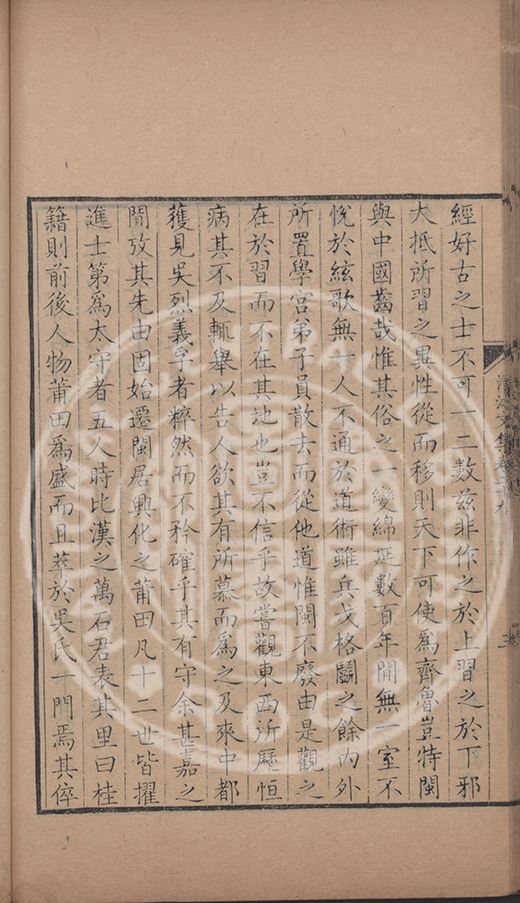 經好古之士不可一二數茲非作之於上習之於下邪
大抵所習之異性從而移則天下可使爲齊魯豈特閩
與中國齒哉惟其俗之一變綿延數百年閒無一室不
悅於絃歌無一人不通於道術雖兵戈格鬭之餘內外
所置學宮弟子員散去而從他道惟閩不廢由是觀之
在於習而不在其地也豈不信乎故嘗觀東西所歷恒
病其不及輒舉以告人欲其有所慕而爲之及來中都
獲見吳烈義孚者粹然而不矜確乎其有守余甚嘉之
閒攷其先由固始遷閩居興化之莆田凡十二世皆擢
進士第爲太守者五人時比漢之萬石君表其里曰桂
籍則前後人物莆田爲盛而且萃於吳氏一門焉其倅